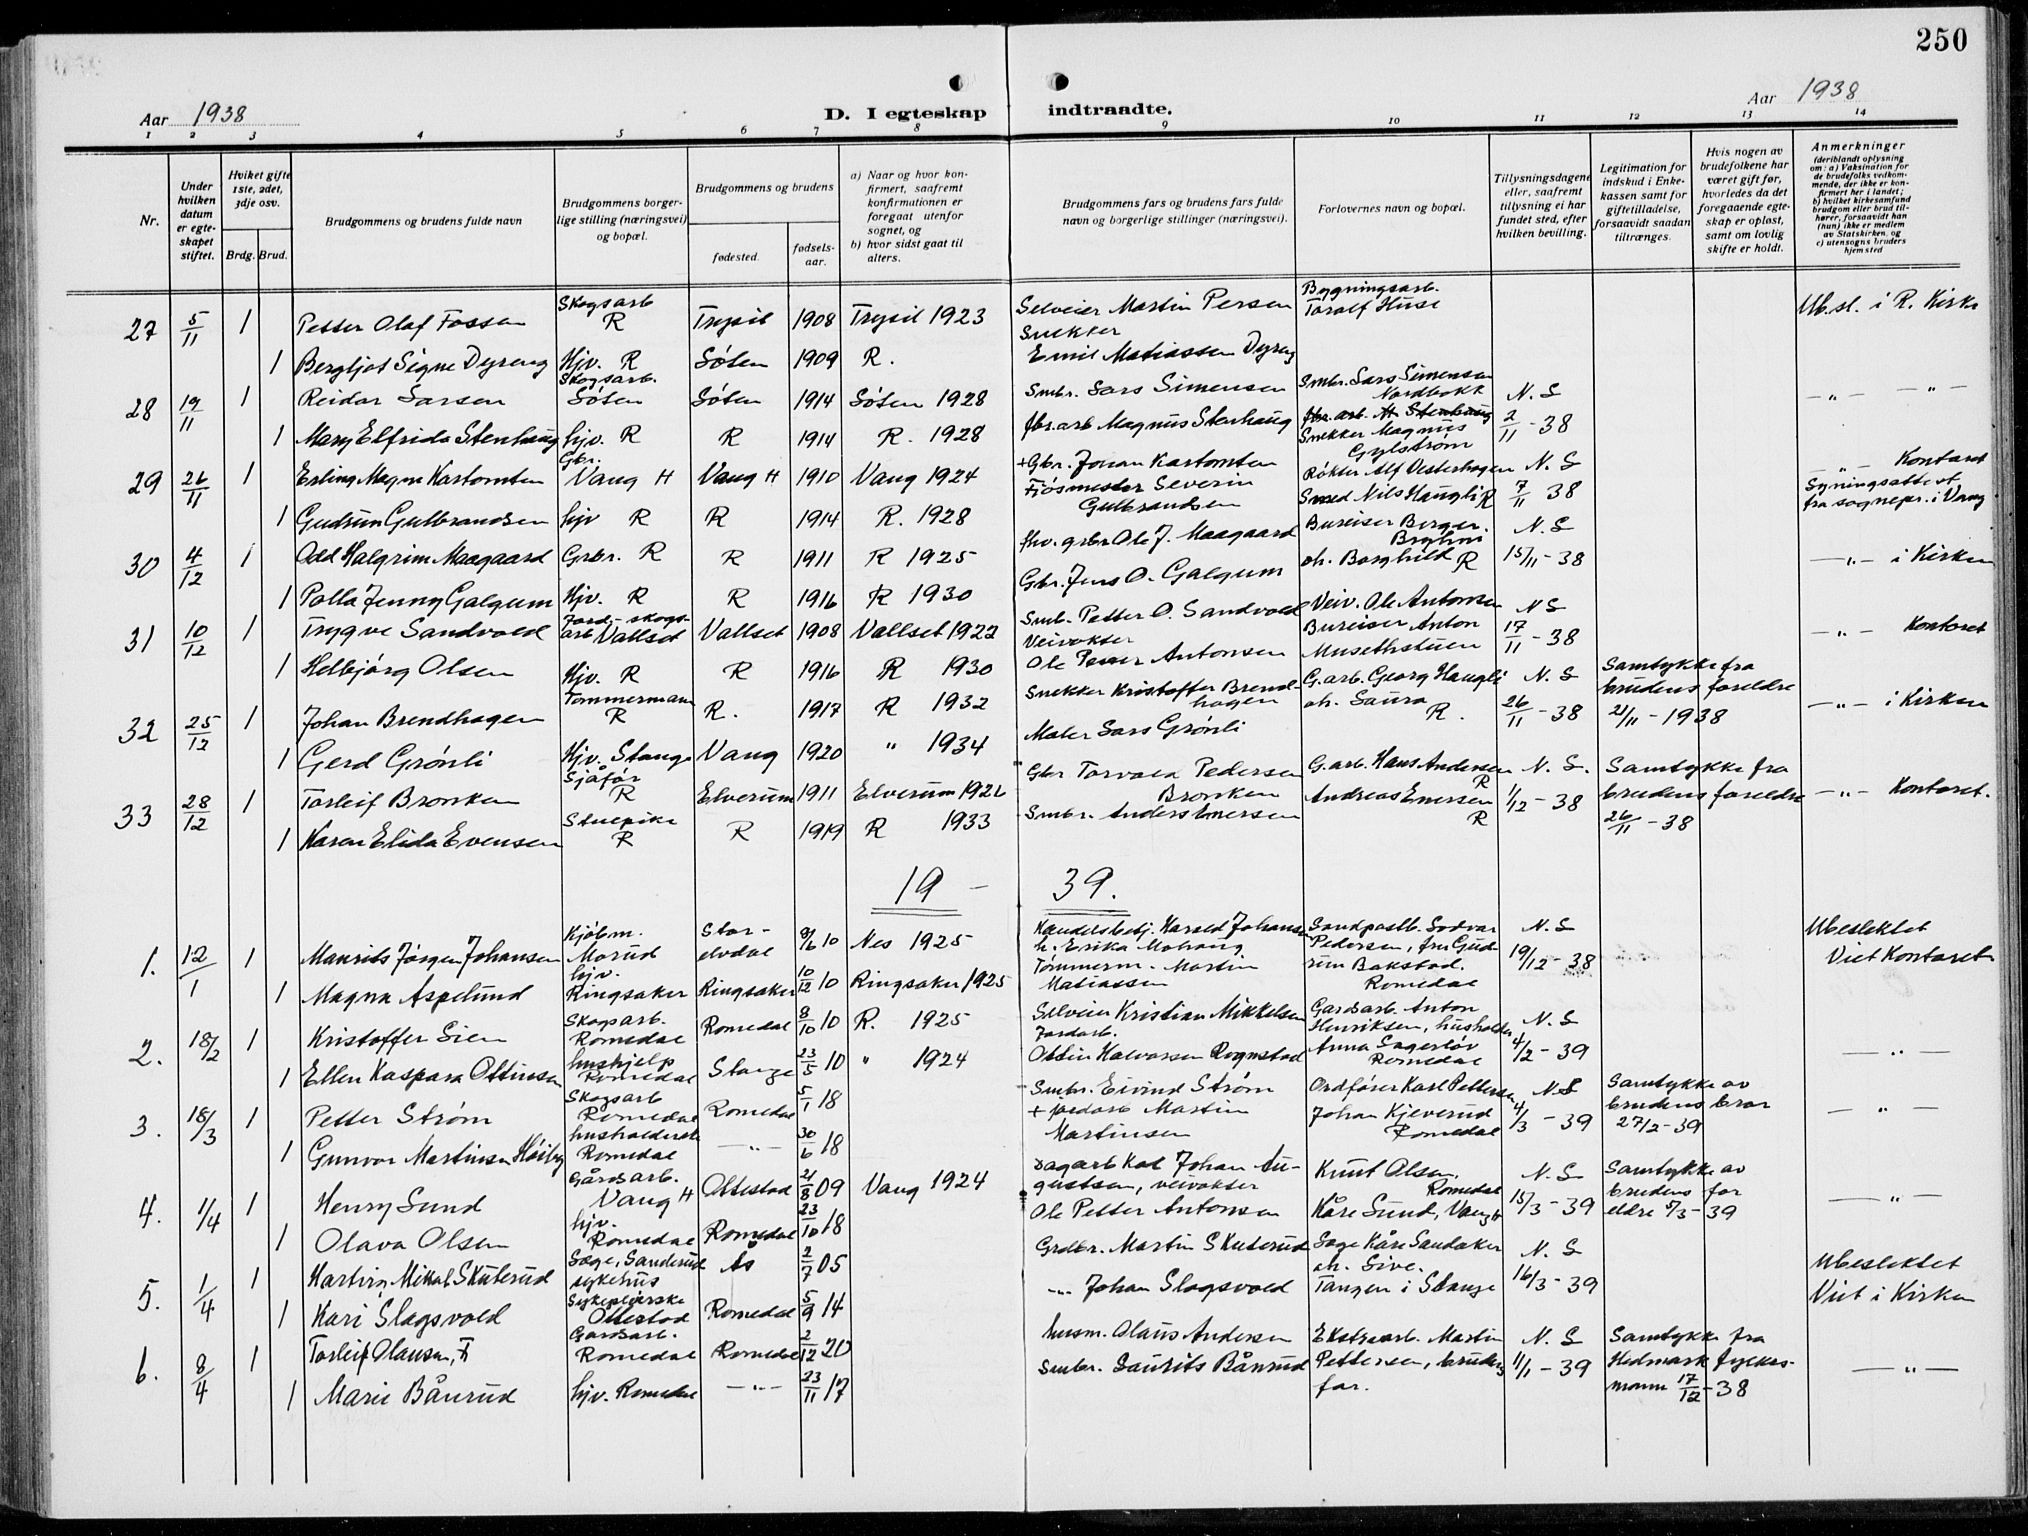 250
Aar 1938
D. I egteskap indtraadte.
Aar 1938
1 2 3 4 5 6 7 8 9 10 11 12 13 14
Nr.
Under hvilken datum er egteskapet stiftet.
Hviket gifte 1ste, 2det, 3dje osv.
Brdg. Brud.
Brudgommens og brudens fulde navn
Brudgommens borgerlige stilling (næringsvei) og bopæl.
Brudgommens og brudens
fødested.
fødselsaar.
a) Naar og hvor konfirmert, saafremt konfirmationen er foregaat utenfor sognet, og
b) hvor sidst gaat til alters.
Brudgommens fars og brudens fars fulde navn og borgerlige stillinger (næringsvei).
Forlovernes navn og bopæl.
Tillysningsdagene eller, saafremt tillysning ei har fundet sted, efter hvilken bevilling.
Legitimation for indskud i Enkekassen samt for giftetilladelse, forsaavidt saadan tiltrænges.
Hvis nogen av brudefolkene har været gift før, hvorledes da det foregaaende egteskap er opløst, samt om lovlig skifte er holdt.
Anmerkninger
(deriblandt oplysning om: a) Vaksination for de brudefolks vedkommende, der ikke er konfirmert her i landet;
b) hvilket kirkesamfund brudgom eller brud tilhører, forsaavidt han (hun) ikke er medlem av Statskirken, og
c) utensogns bruders hjemsted
27 5/11 1 Petter Olaf Fossen Skogsarb R Trysil 1908 Trysil 1923 Selveier Martin Persen Bygningsarb. Toralf Huse Ub.sl. i R. Kirke
1 Bergljot Signe Dyreng Hjv. R Søten 1909 R. Snekker Emil Matiassen Dyreng
28 19/11 1 Reidar Larsen Skogsarb. Søten Søten 1914 Søten 1928 Smbr. Lars Simensen Smbr. Lars Simensen Nordbekk N. S — " — — " —
1 Mary Elfrida Stenhaug hjv. R R 1914 R. 1928 fbr.arb Magnus Stenhaug fbr. arb. M. Stenhaug Snekker Magnus Gylstrøm 2/11 - 38
29 26/11 1 Erling Magne Kartomten Gbr. Vang H Vang H 1910 Vang 1924 + Gbr. Johan Kartomten Røkter Alf Vesterhagen N. S — " — Kontoret
1 Gudrun Gulbrandsen hjv R R 1914 R. 1928 Fjøsmester Severin Gulbrandsen Smed Nils Haugli R 7/11 38 fra sognepr. i Vang
30 4/12 1 Odd Halgrim Maagaard Grbr. R R 1911 R 1925 fhv. grbr Ole J. Maagaard Bureiser Berger N. S — " — i Kirken
1 Palla Jenny Galgum Hjv. R R 1916 R 1930 Gbr. Jens O. Galgum oh. Borghild R 15/11 - 38
31 10/12 1 Trygve Sandvold Jord- skogsarb Vallset Vallset 1908 Vallset 1922 Smb. Petter O. Sandvold Veiv. Ole Antonsen N S — " — Kontoret
1 Helbjørg Olsen Hjv. R R 1916 R 1930 Veivokter Ole Petter Antonsen Bureiser Anton Musethstuen 17/11 - 38
32 25/12 1 Johan Brendhagen Tømmermann R R. 1917 R 1932 Snekker Kristoffer Brendhagen G.arb. Georg Haugli N. S Samtykke fra brudens foreldre — " — i Kirken
1 Gerd Grønli Hjv. Stange Vang 1920 " 1934 Maler Lars Grønli oh. Laura R. 26/11 - 38 21/11 - 1938
33 28/12 1 Torleif Bronken Sjåfør R Elverum 1911 Elverum 1926 Gbr Torvald Pedersen Bronken G.arb. Hans Andersen R N. S. Samtykke fra brudens foreldre — " — Kontoret.
1 Karen Elida Evensen Stuepike R R 1919 R 1933 Smbr. Anders Emersen Andreas Emersen R 1/12 - 38 26/11 - 38
19 — 39.
1. 12/1 1 Maurits Jørgen Johansen Kjøbm. Morud Storelvdal 8/6 10 Nes 1925 Handelsbetj. Harald Johansen h. Erika Mohaug Landpostb. Lodvar Pedersen, fru Gudrun Bakstad. Romedal N. S 19/12 - 38 Ubeslektet
1 Magna Aspelund hjv. Ringsaker Ringsaker 10/12 10 Ringsaker 1925 Tømmerm. Martin Matiassen Viet Kontoret
2. 18/2 1 Kristoffer Lien Skogsarb. Romedal Romedal 8/10 10 R. 1925 Selveier Kristian Mikkelsen Gardsarb. Anton Henriksen, husholder N. S
1 Ellen Kaspara Ottinsen hushjelp Romedal Stange 23/5 10 " 1924 Jordarb. Ottin Halvorsen Rognstad Anna Lagerløv Romedal 4/2 - 39 — " —
3. 18/3 1 Petter Strøm Skogsarb Romedal Romedal 5/1 18 Smbr. Eivind Strøm Ordfører Karl Pettersen N. S Samtykke av brudens bror — " —
1 Gunvor Martinsen Høiby husholderske Romedal — " — 30/6 18 + Jordarb Martin Martinsen Johan Kjeverud Romedal 4/3 - 39 27/2 - 39
4. 1/4 1 Henry Sund Gårdsarb. Vang H Ottestad 21/8 09 Vang 1924 Dagarb Karl Johan Augustsen, veivokter Knut Olsen, Romedal N. S Samtykke av brudens foreldre 5/3 - 39 — " —
1 Olava Olsen hjv. Romedal Romedal 23/10 18 Ole Petter Antonsen Kåre Sund, Vang H 15/3 - 39
5. 1/4 1 Hartvig Mikal Skuterud Læge, Sanderud sykehus Ås 2/7 05 Grdbr. Martin Skuterud Læge Kåre Sandaker oh. Live. N. S Ubeslektet
1 Kari Slagsvold Sykepleierske Ottestad Romedal 5/9 14 — " — Johan Slagsvold Tangen i Stange 16/3 - 39 Viet i Kirken
6. 8/4 1 Torleif Olausen, Gardsarb. Romedal Romedal 2/12 20 husm. Olaus Andersen Ekstraarb. Martin N. S Samtykke fra
1 Marie Bånrud hjv. Romedal — " — 23/11 17 Smbr. Laurits Bånrud Pettersen, brudens far. 11/1 - 39 Hedmark fylkesmann 17/12 - 38 — " —